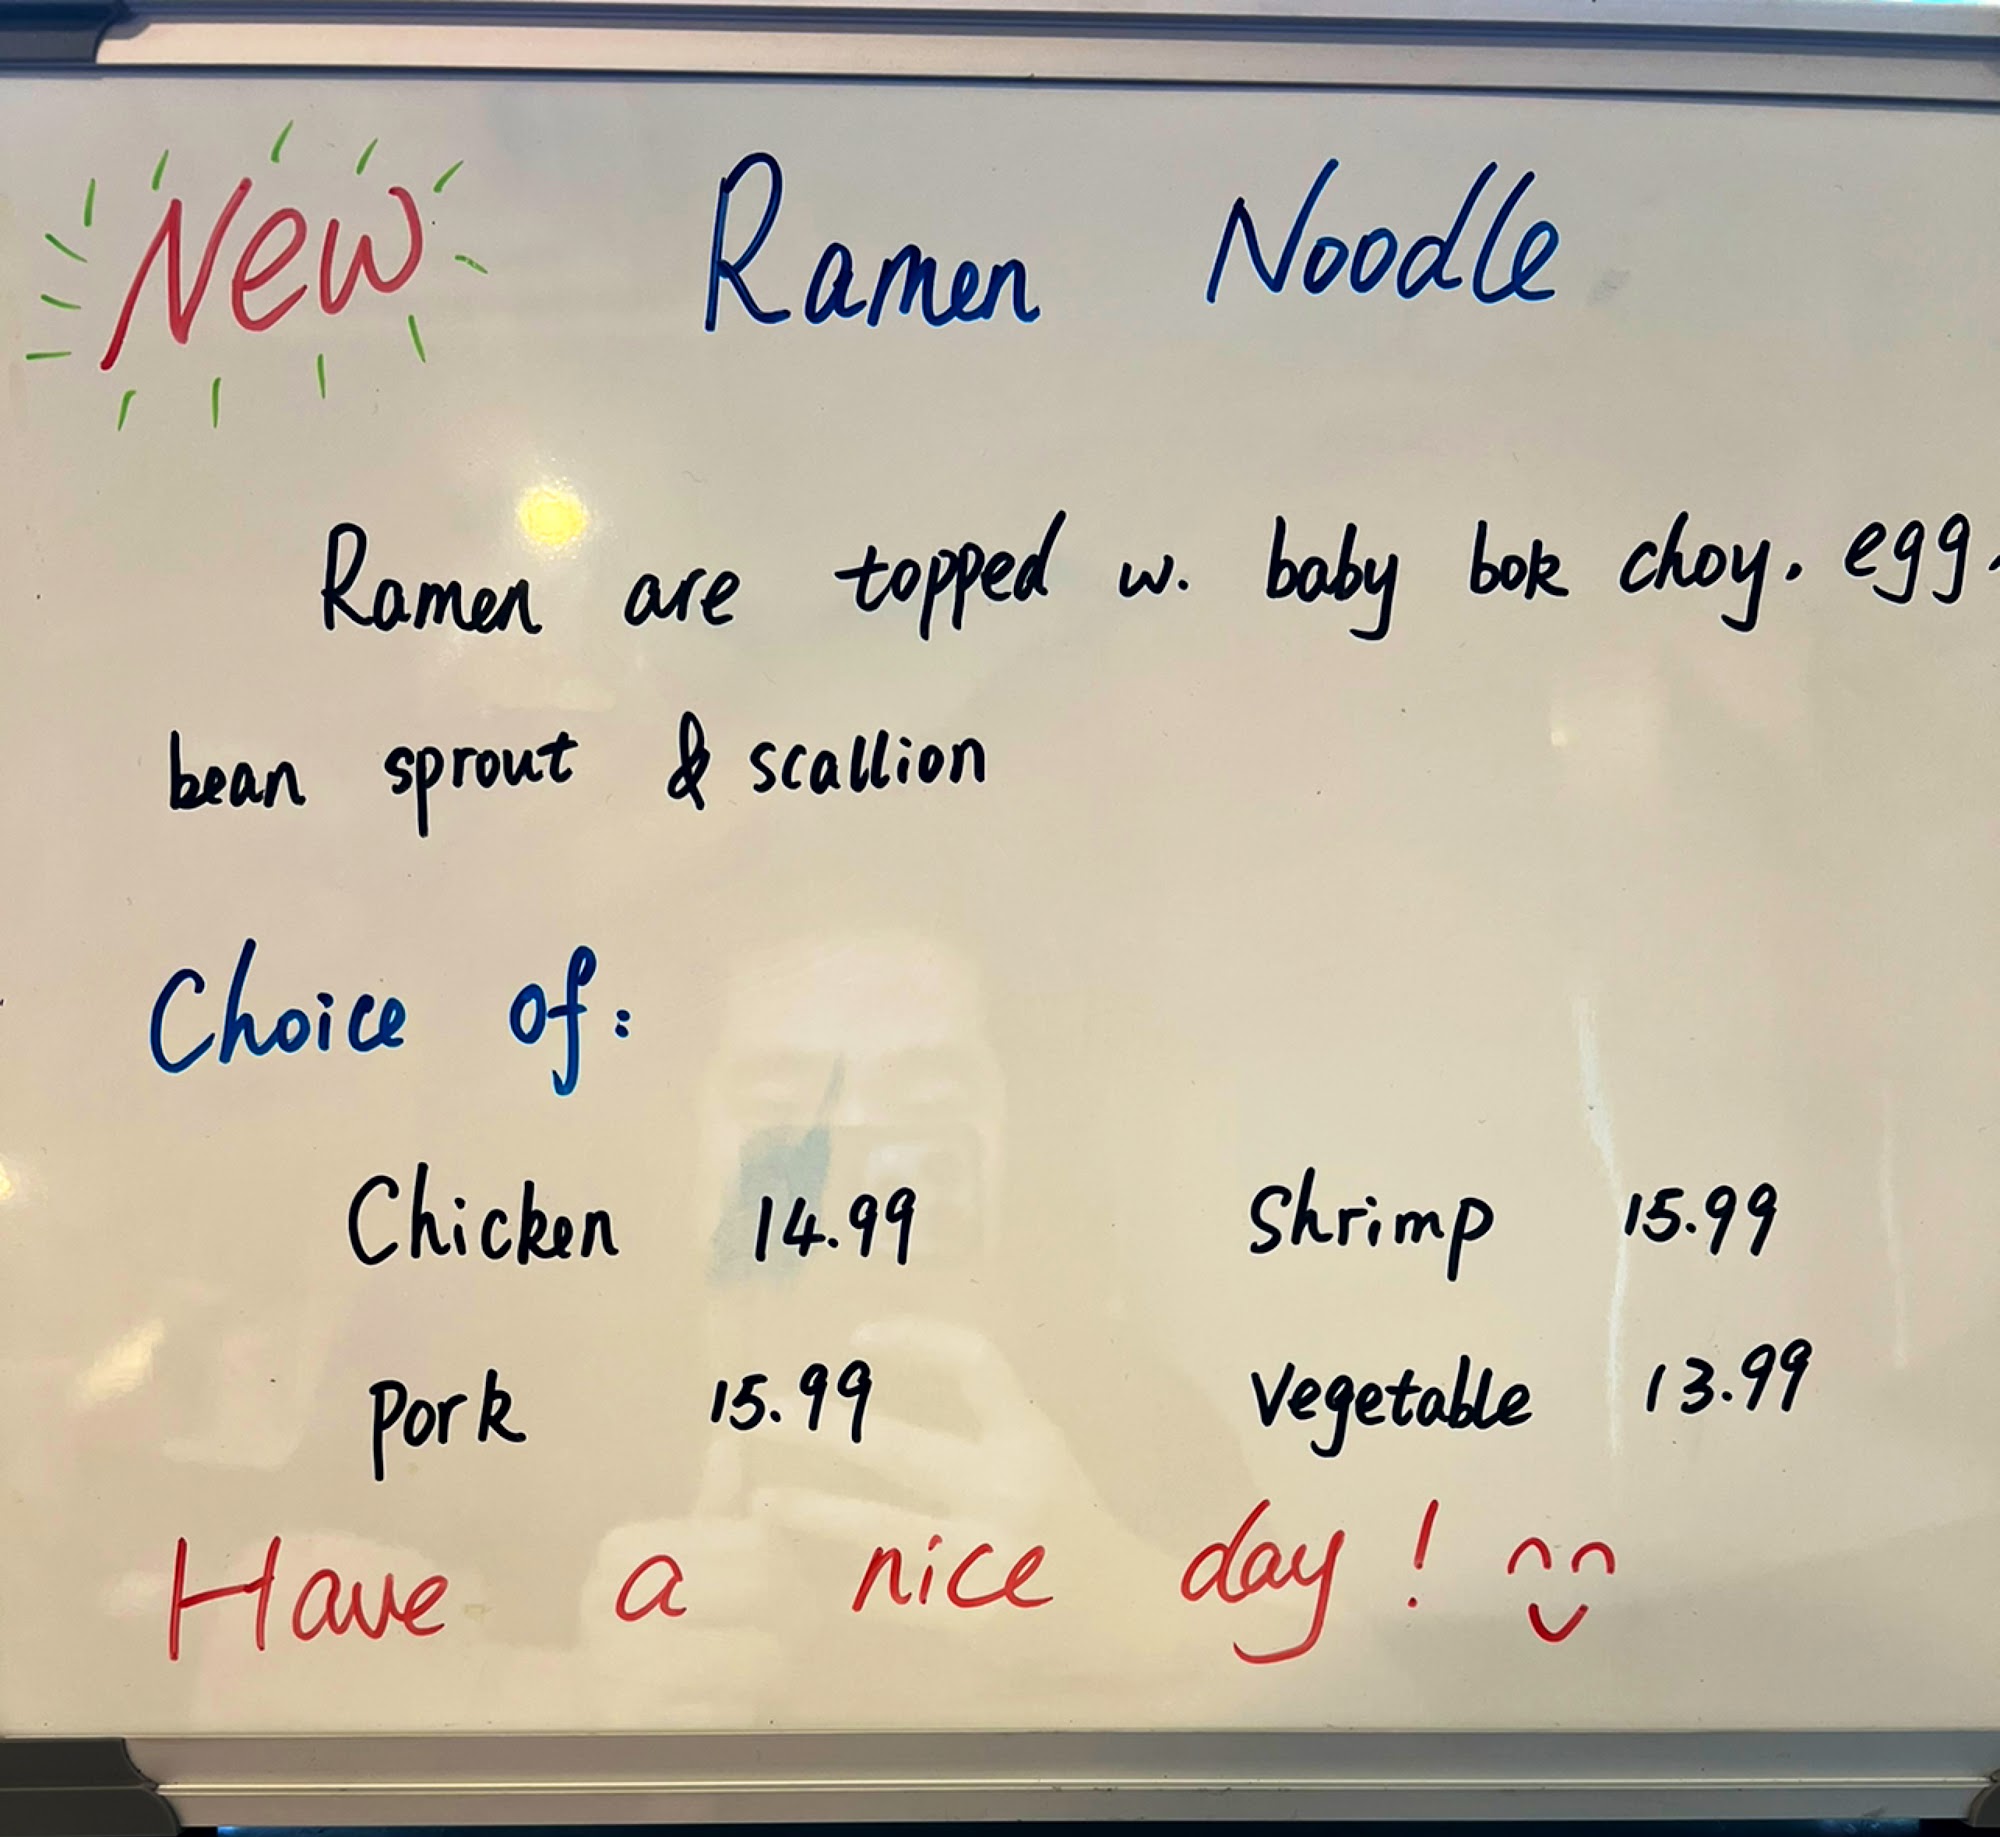 New Ramen Noodle
Ramen are topped w. baby bok choy. egg.
bean sprout & scallion
Choice of:
Chicken 14.99 Shrimp 15.99
Pork 15.99 Vegetable 13.99
Have a nice day!